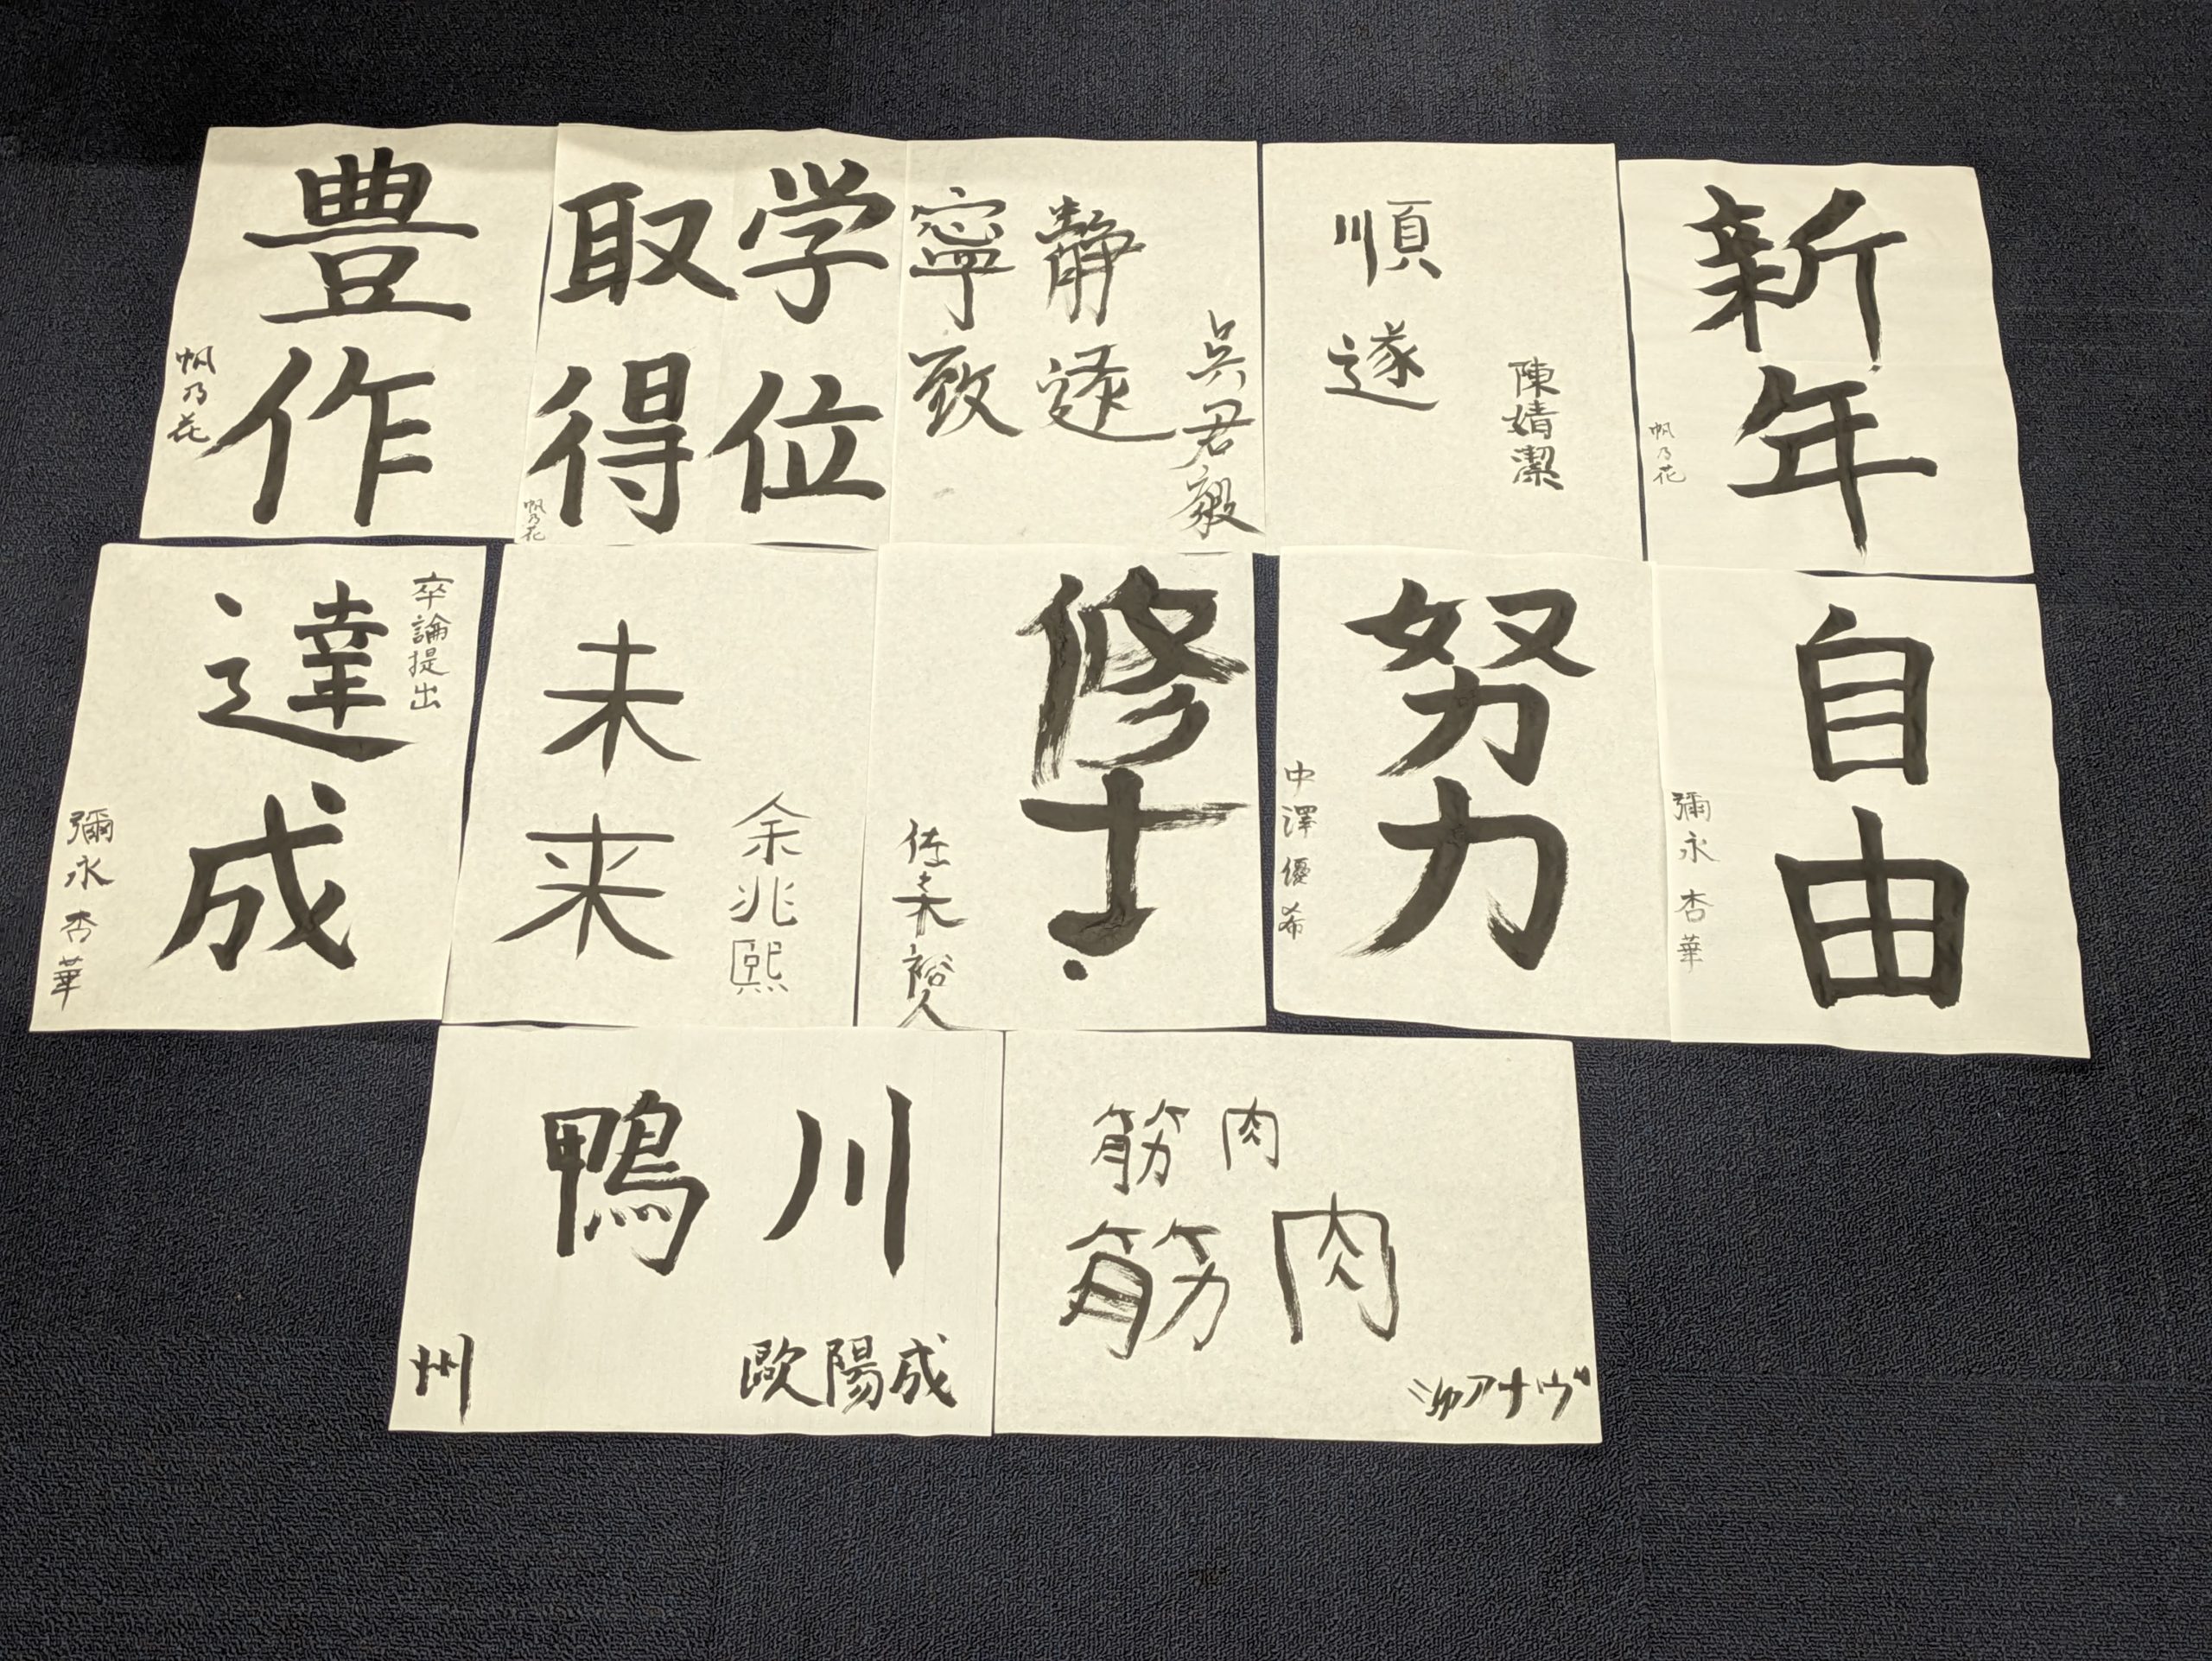 新年
帆乃花
順遂
陳婧潔
静遠
寧致
呉君毅
学位
取得
帆乃花
豊作
帆乃花
自由
彌永杏華
努力
中澤優希
修士
裕人
未来
余兆熙
卒論提出
達成
彌永杏華
鴨川
歐陽成
州
筋肉
筋肉